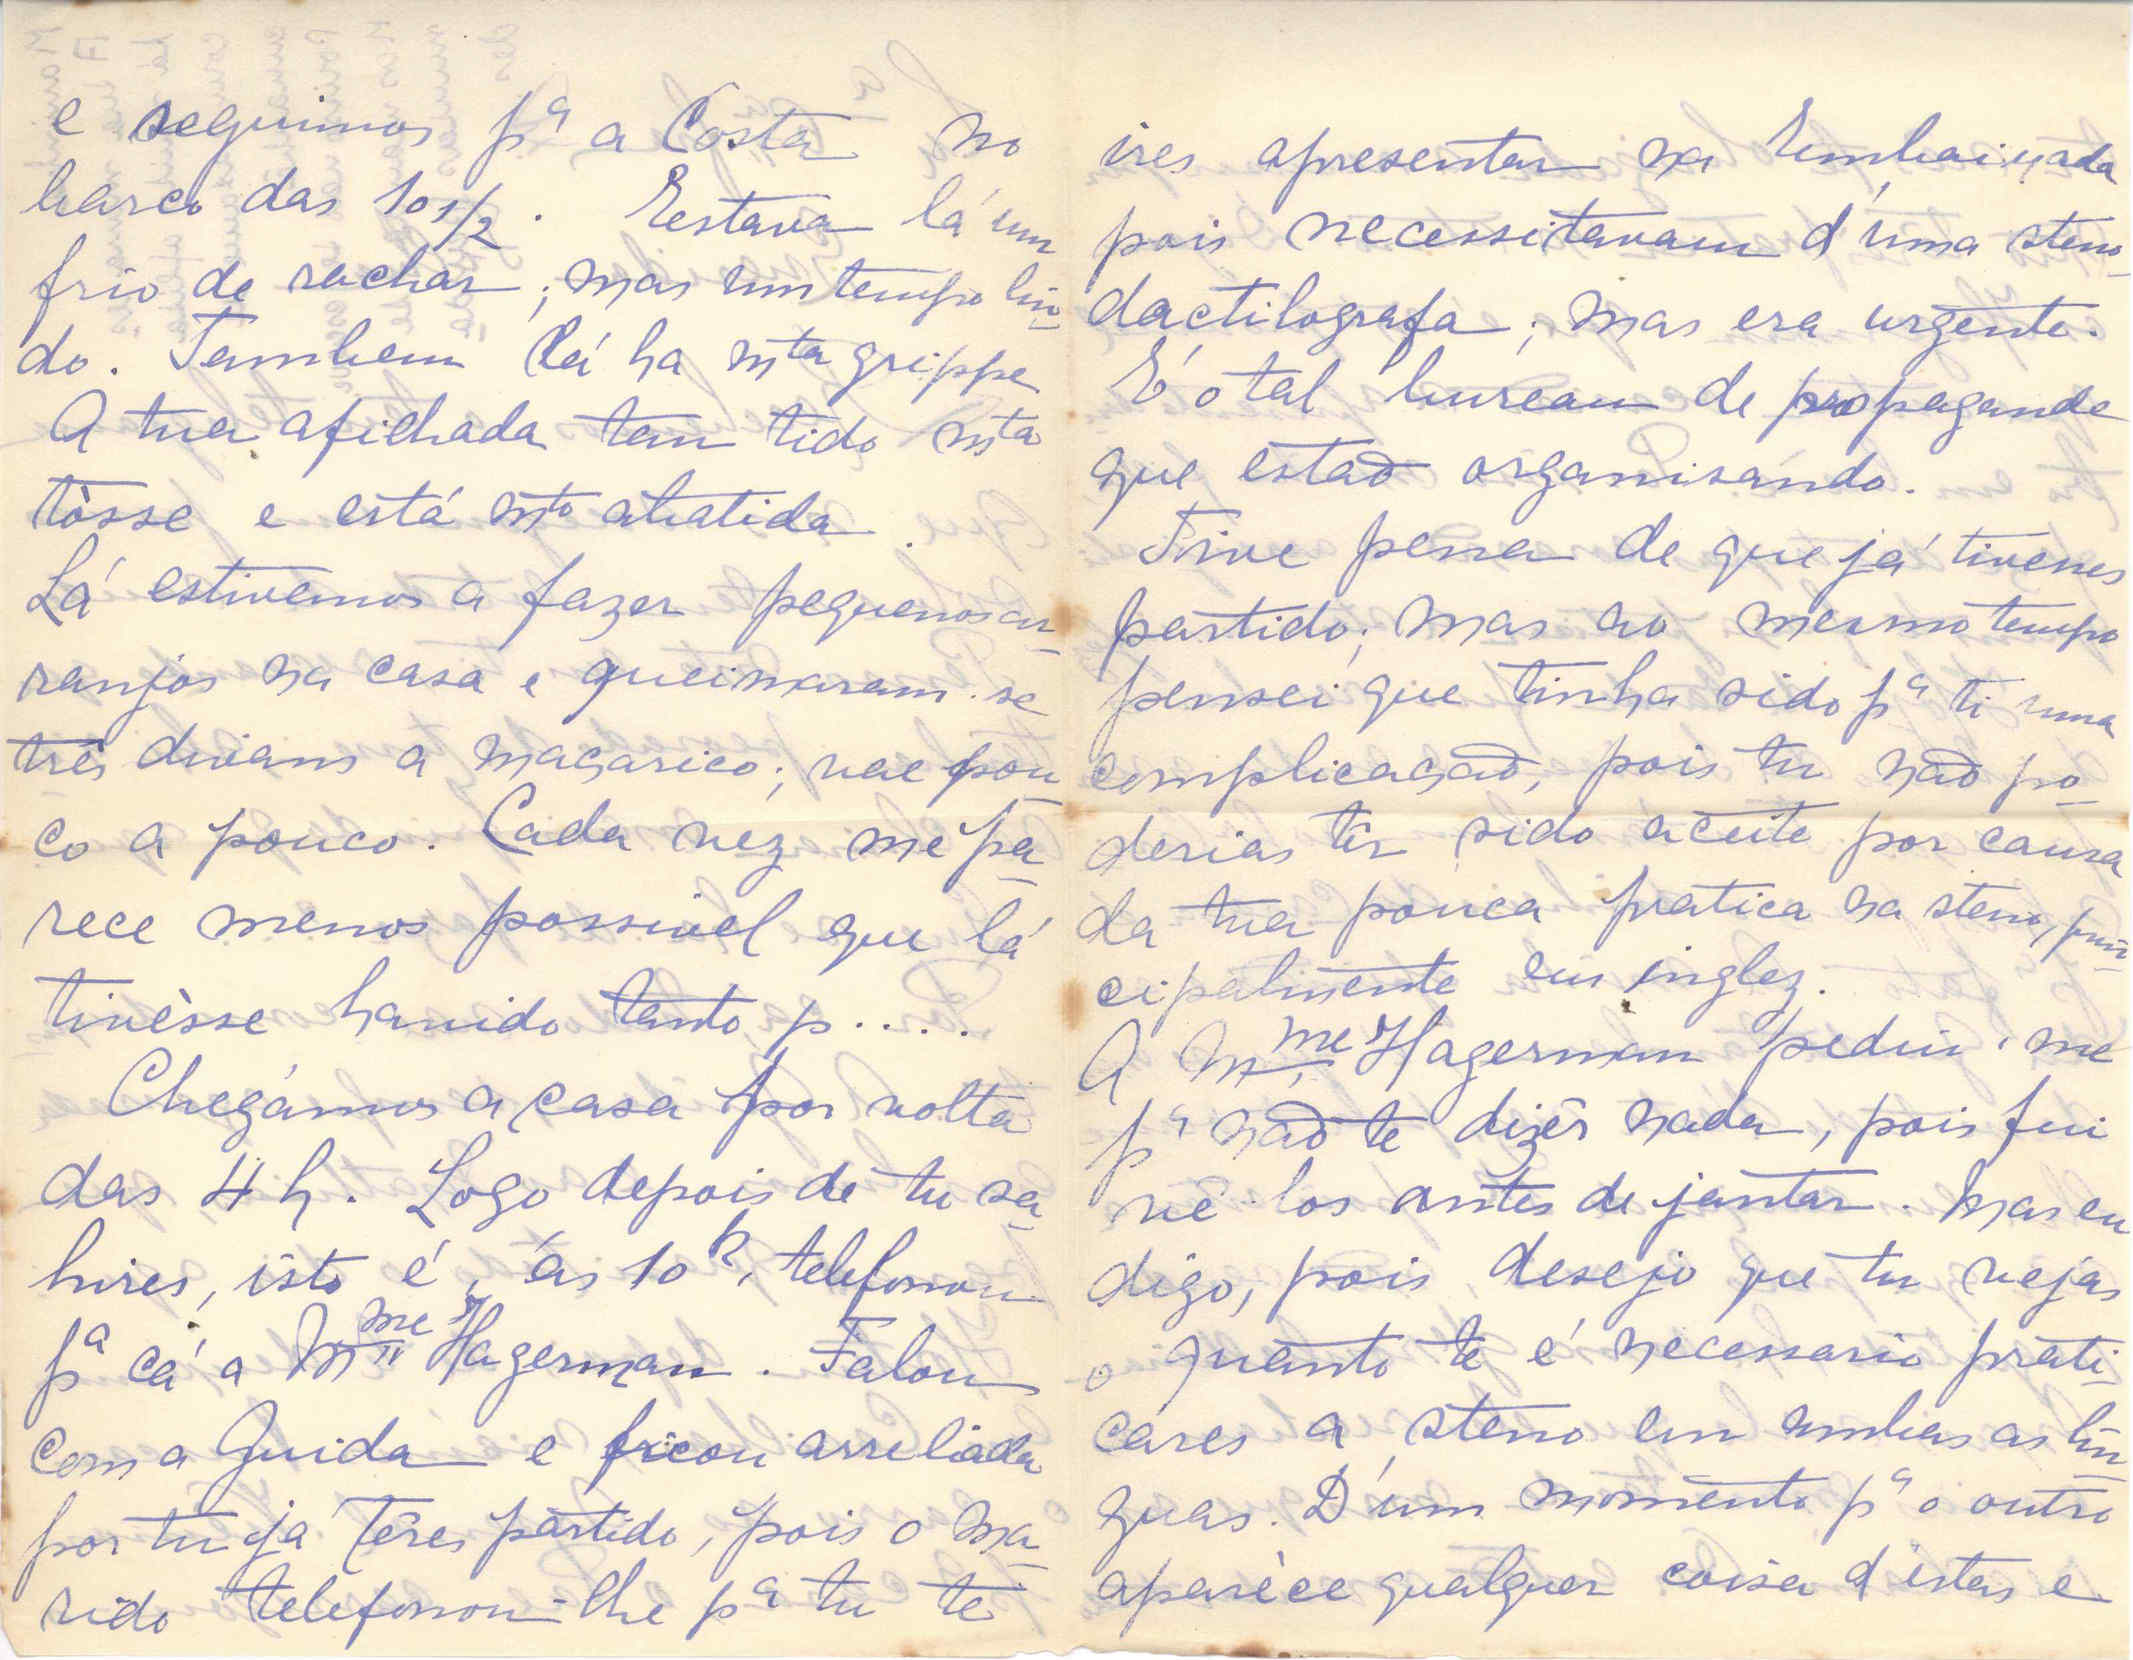 e seguimos pª a Costa no
barco das 10 1/2. Estava lá um
frio de rachar; mas um tempo lin-
do. Tambem lá ha mta grippe
A tua afilhada tem tido mta
tòsse e está mto abatida.
Lá estivemos a fazer pequenos ar-
ranjos na casa e queimaram-se
três divans a maçarico; vae pou-
co a pouco. Cada vez me pa-
rece menos possivel que lá
tivèsse havido tanto p....
Chegámos a casa por volta
das 4 h. Logo depois de tu sa-
hires, isto é, ás 10 h, telefonou
pª cá a Mme Hagerman. Falou
com a Guida e ficou arreliada
por tu já têres partido, pois o ma-
rido telefonou-lhe pª tu te
ires apresentar na Embaixada
pois necessitavam d'uma steno-
dactilografa; mas era urgente.
E' o tal bureau de propagande
que estaõ organisando.
Tive pena de que já tivesses
partido; mas ao mesmo tempo
pensei que tinha sido pª ti uma
complicaçaõ, pois tu naõ po-
derias têr sido aceite por causa
da tua pouca pratica na steno, prin-
cipalmente em inglez.
A Mme Hagerman pediu-me
pª naõ te dizêr nada, pois fui
vê-los antes de jantar. Mas eu
digo, pois desejo que tu vejas
o quanto te é necessario prati-
cares a steno em ambas as lin-
guas. D'um momento pª o outro
aparèce qualquer coisa d'estas e